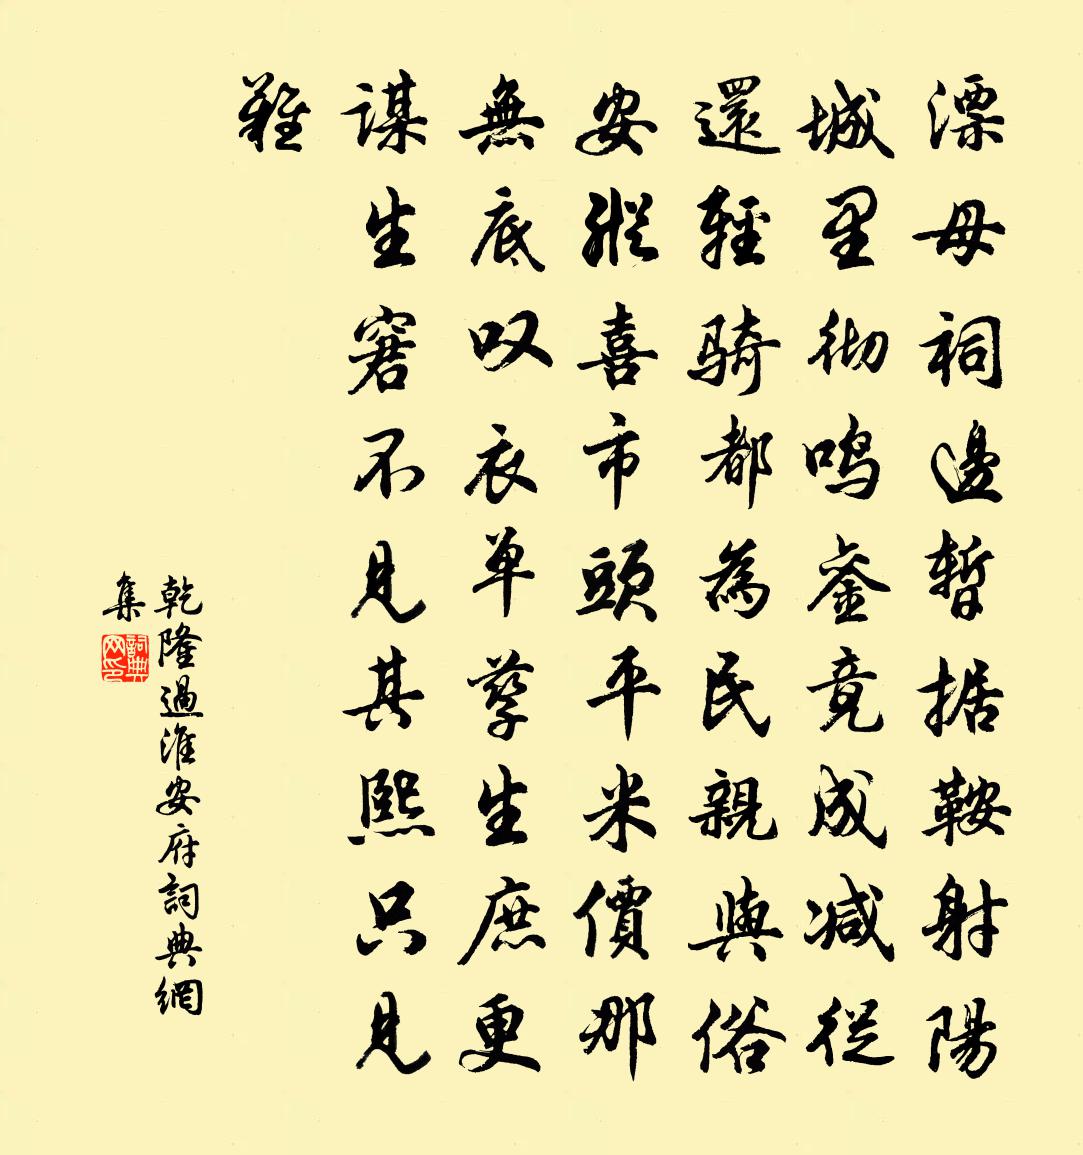 漂母祠邊暫据鞍射陽
城里彻鸣銮竟成减從
還輕騎都為民親與俗
安縱喜市頭平米價那
無底叹衣单孽生庶更
謀生窘不見其熙只見
難
乾隆過淮安府詞典網
集
詞典
网印